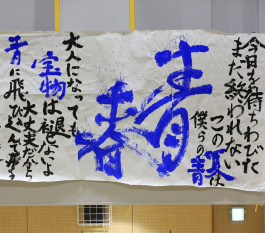 今日を待ちわびた
まだ終われない
この夏は
僕らの青
青春
大人になっても
宝物は褪せないよ
大丈夫だから
青に飛び込んで